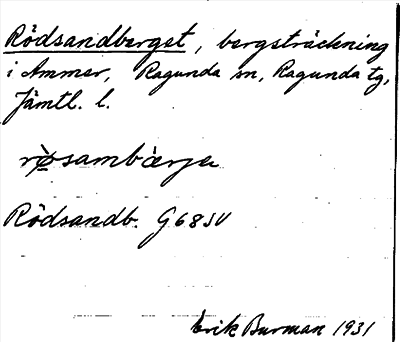 Rödsandberget, bergsträckning
i Ammer, Ragunda sn, Ragunda tg,
Jämtl. l.
Rödsandb. G 68 SV
Erik Burman 1931